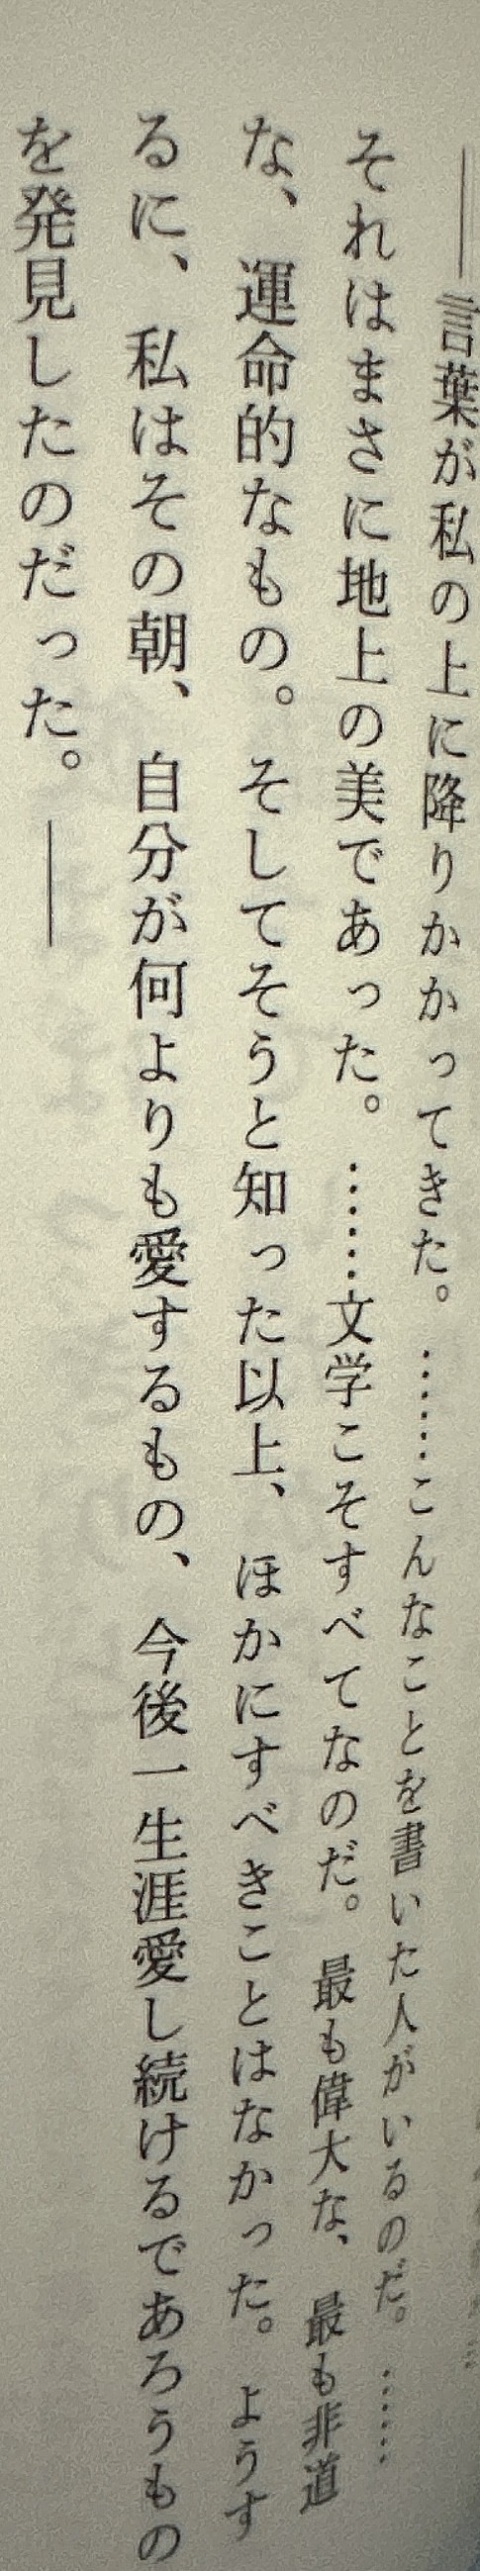 ――言葉が私の上に降りかかってきた。……こんなことを書いた人がいるのだ。……
それはまさに地上の美であった。……文学こそすべてなのだ。最も偉大な、最も非道
な、運命的なもの。そしてそうと知った以上、ほかにすべきことはなかった。ようす
るに、私はその朝、自分が何よりも愛するもの、今後一生涯愛し続けるであろうもの
を発見したのだった。――